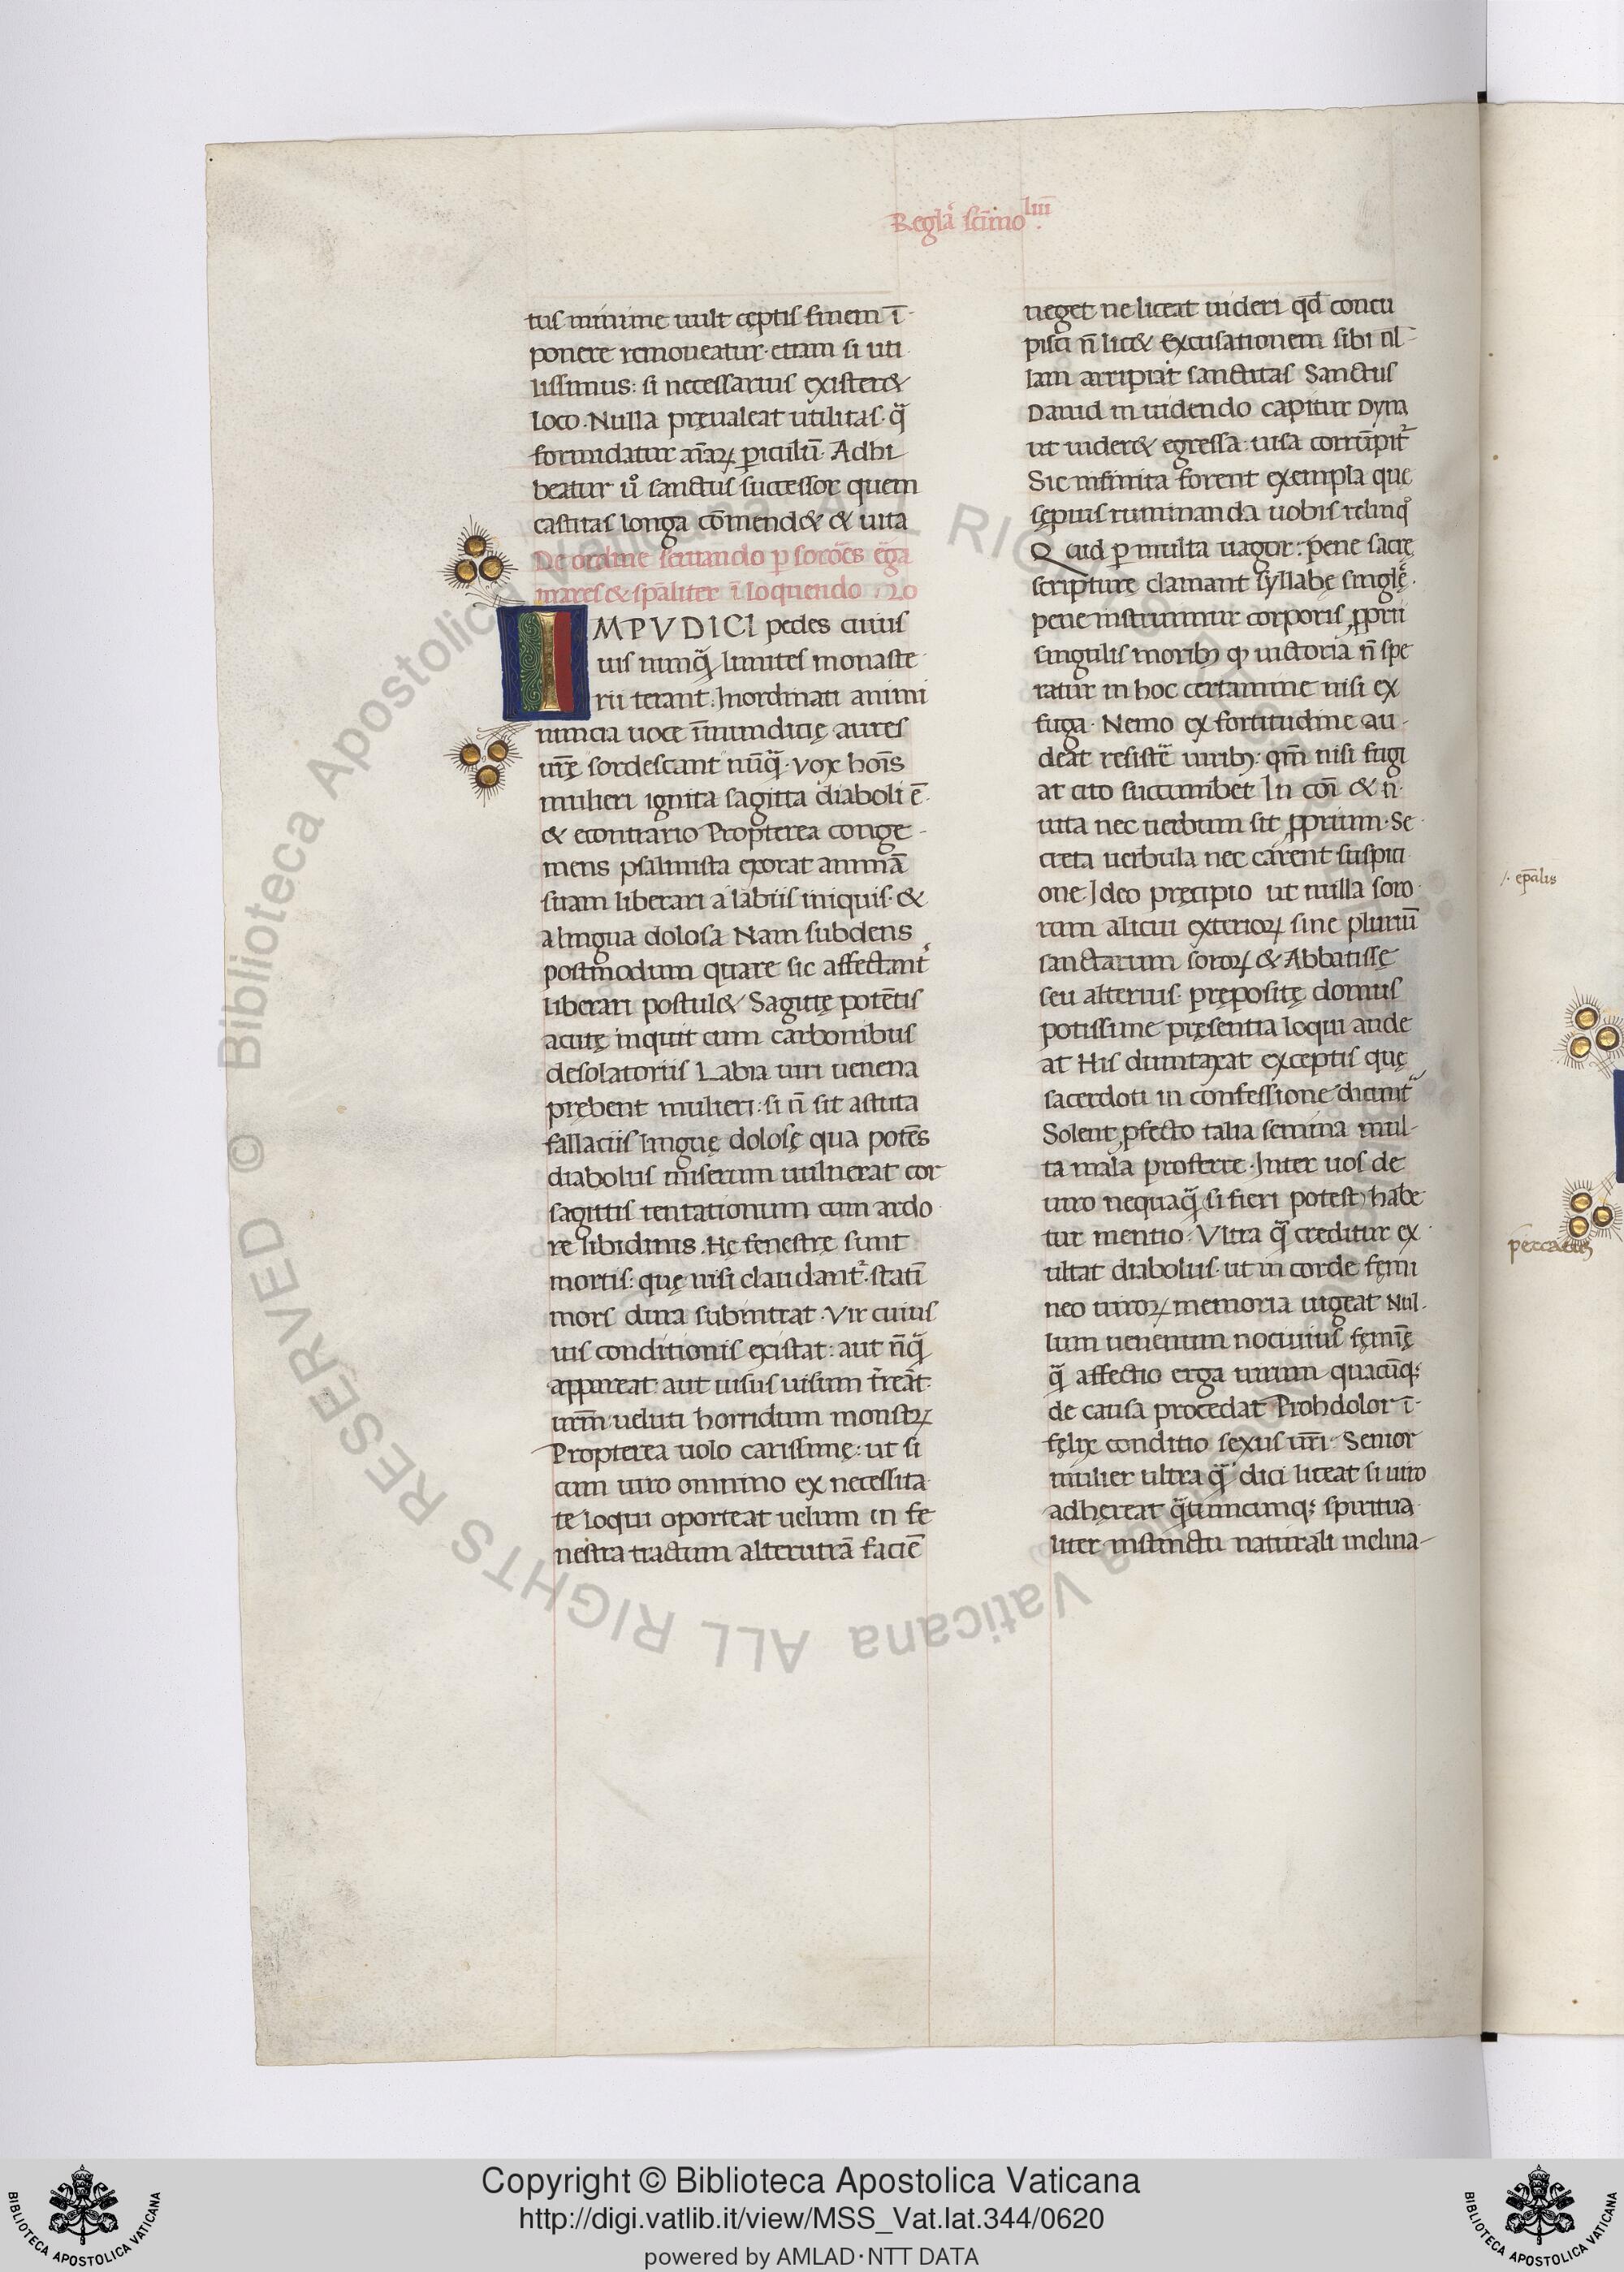 Regla̅ sci̅mo liii.
tus minime uult cęptis finem i̅-
ponere remoueatur· etiam si uti
lissimus: si necessarius exister&
loco. Nulla pręualeat utilitas· q̃
formidatur ani̅aꝝ periculu̅. Adhi
beatur u̅o sanctus successor quem
castitas longa co̅mend& & uita
De ordine seruando p soro̅es e̅ga
mares & sp̅aliter i̅ loquendo . 20
IMPVDICI pedes cuius
uis nunq̃ limites monaste
rii terant: Inordinati animi
nuncia uoce i̅mundicię aures
ur̅ę sordescant nu̅q̃. vox ho̅is
mulieri ignita sagitta diaboli e̅.
& econtrario Propterea conge-
mens psalmista exorat anima̅
suam liberari a labiis iniquis· &
a lingua dolosa Nam subdens
postmodum quare sic affectant̃
liberari postul& Sagittę pote̅tis
acutę inquit cum carbonibus
desolatoriis Labia uiri uenena
prębent mulieri: si n̅ sit astuta
fallaciis linguę dolosę qua pote̅s
diabolus miserum uulnerat cor
sagittis tentationum cum ardo
re libidinis. Hę fenestrę sunt
mortis: quę nisi claudant̃· stati̅
mors dura subintrat. Vir cuius
uis conditionis existat: aut n̅q̃
appareat aut uisus uisum t̃reat
ur̅m ueluti horridum monstꝝ
Propterea uolo carissimę: ut si
cum uiro omnino ex necessita
te loqui oporteat uelum in fe
nestra tractum alterutra̅ facie̅
neget ne liceat uideri qd̅ concu
pisci n̅ lic& Excusationem sibi nl̅-
lam arripiat sanctitas Sanctus
Dauid in uidendo capitur Dyna
ut uider& egressa· uisa corru̅pit̃
Sic infinita forent exempla quę
sępius ruminanda uobis relinqo
Quid p multa uagor: pene sacrę
scripturę clamant syllabę singlę̃.
pene instruimur corporis ꝓprii
singulis moribꝫ ꝙ uictoria n̅ spe
ratur in hoc certamine nisi ex
fuga· Nemo ex fortitudine au-
deat resiste̅ uiribꝫ: qm̅ nisi fugi
at cito succumbet In coi̅ & n̅·
uita nec uerbum sit ꝓprium· Se
creta uerbula nec carent suspiti
one. Ideo pręcipio ut nulla soro
rum alicui exterioꝝ sine pluriu̅
sanctarum soroꝝ & Abbatissę
seu alterius prępositę domus
potissime pręsentia loqui aude
at His dumtaxat exceptis quę
sacerdoti in confessione dicunt̃
Solent ꝓfecto talia semina mul-
ta mala proferre· Inter uos de
uiro nequaq̃ si fieri potest habe
tur mentio. Vltra q̃ creditur ex
ultat diabolus· ut in corde fęmi
neo uiroꝝ memoria uigeat Nul-
lum uenenum nociuius fęmi̅ę
q̃ affectio erga uirum quacu̅qꝫ
de causa procedat Prohdolor i̅-
fęlix conditio sexus ur̅i· Senior
mulier ultra q̃ dici liceat si uiro
adhęreat q̃tumcumqꝫ spiritua
liter instinctu naturali inclina-
/· ep̅alis
© Biblioteca Apostolica Vaticana ALL RIGHTS RESERVED
Copyright © Biblioteca Apostolica Vaticana
http://digi.vatlib.it/view/MSS_Vat.lat.344/0620
powered by AMLAD·NTT DATA
BIBLIOTECA APOSTOLICA VATICANA
BIBLIOTECA APOSTOLICA VATICANA